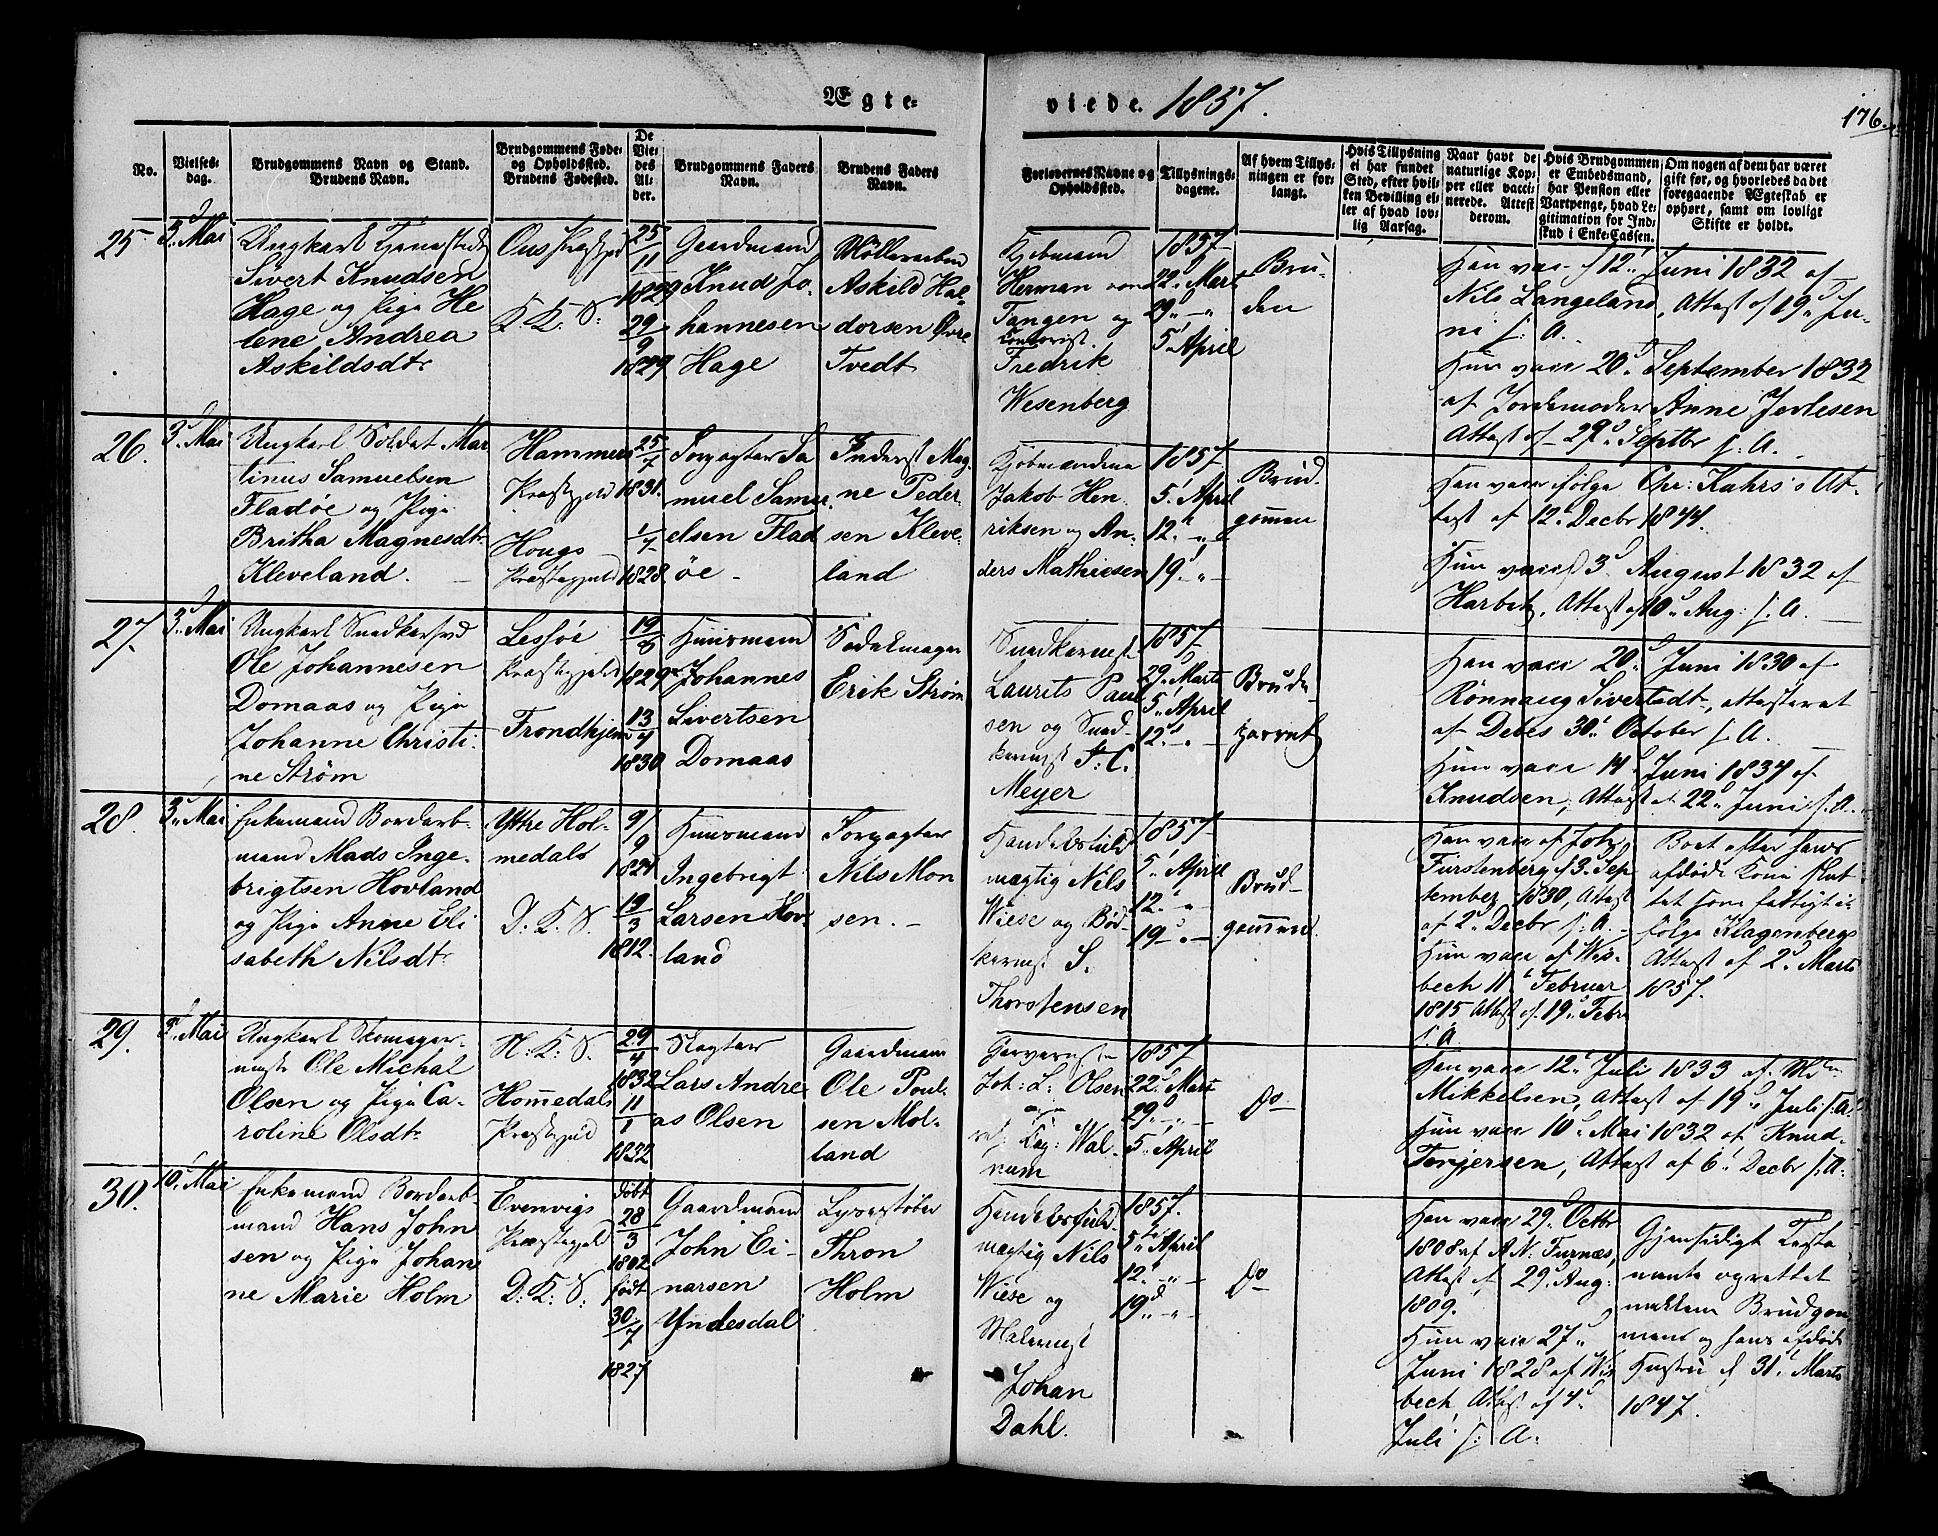 Ægte-
viede. 1857.
176.
No.
Vielses-
dag.
Brudgommens Navn og Stand.
Brudens Navn.
Brudgommens Føde-
og Opholdssted.
Brudens Fødested.
De
Vie-
des
Al-
der.
Brudgommens Faders
Navn.
Brudens Faders
Navn.
Forlovernes Navne og
Opholdssted.
Tillysnings-
dagene.
Af hvem Tillys-
ningen er for-
langt.
Hvis Tillysning
ei har fundet
Sted, efter hvil-
ken Bevilling el-
ler af hvad lov-
lig Aarsag.
Naar havt de
naturlige Kop-
per eller vacci-
nerede. Attest
derom.
Hvis Brudgommen
er Embedsmand,
har Pension eller
Vartpenge, hvad Le-
gitimation for Ind-
skud i Enke-Cassen.
Om nogen af dem har været
gift før, og hvorledes da det
foregaaende Ægteskab er
ophørt, samt om lovligt
Skifte er holdt.
25
3d Mai
Ungkarl
Sivert Knudsen
Hage og Pige He
lene Andrea
Askildsdtr
Ous Præstegjeld
K. K. S:
25
11
1829
29
9
1829
Gaardmand
Knud Jo-
hannesen
Hage
Møllersvend
Askild Hal-
dorsen Øvre
Tvedt
Kjøbmand
Herman von
Tangen og
Fredrik
Wesenberg
1857
22. Mart
29d "
5. April
Bru-
den
Han vacc. f 12. Juni 1832 af
Nils Langeland, Attest af 19d Ju-
ni s: A.
Hun vacc 20d September 1832
af Jordemoder Anne Jerlesen
Attest af 29d Septbr s: A.
26.
3d Mai
Ungkarl Soldat Mar
tinus Samuelsen
Fladöe og Pige
Britha Magnesdtr
Kleveland.
Hammers
Præstegjeld
Hougs
Præstegjeld
25
7
1831.
1
7
1828.
Forpagter Sa
muel Samu-
elsen Flad
öe -
Inderst Mag-
ne Peder
sen Kleve-
land
Kjöbmændene
Jakob Hen-
riksen og An-
ders Mathiesen
1857
5. April
12. "
19. "
Brud-
gomen
Han vacc ifölge Chr: Kahrs's At-
test af 12d Decbr 1844.
Hun vacc 3d August 1832 af
Harbitz, Attest af 10d Aug: s: A.
27.
3d Mai
Ungkarl Snedkersvd
Ole Johannesen
Domaas og Pige
Johanne Christi-
ne Strøm
Lessöe
Præstegjeld
Trondhjem
19
8
1829
13
4
1830
Huusmand
Johannes
Sivertsen
Domaas
Sadelmager
Erik Strøm
Snedkermest
Laurits Paul
sen og Sned-
kermest J: C.
Meyer
1857.
29d Marts
5. April
12. "
Brude
parret
Han vacc 20d Juni 1830 af
Rönnaug Sivertsdtr, attesteret
af Debes 30. October s: A.
Hun vacc 14d Juni 1834 af
Knudsen, Attest af 22d Juni s: A.
28.
3. Mai
Enkemand Bordarb-
mand Mads Inge-
brigtsen Hovland
og Pige Anne Eli
sabeth Nilsdtr
Yttre Hol-
medals
D. K. S.
9/
9
1824
19
3
1812.
Huusmand
Ingebrigt
Larsen Hov-
land
Forpagter
Nils Mon
sen. -
Handelsfuld
mægtig Nils
Wiese og Bød-
kermest S.
Thorstensen
1857
5. April
12. "
19 "
Brud-
gommen.
Han vacc af Joh:
Furstenberg f 3d Sep
tember 1830, Attest
af 2d Decbr s: A.
Hun vacc af Wis-
bech 11. Februar
1815 Attest af 19d Febr
s: A.
Boet efter hans
afdöde Kone slut
tet som fattigt i-
fölge Klagenbergs
Attest af 2d Marts
1857.
29.
3. Mai
Ungkarl Skomager-
mester Ole Michal
Olsen og Pige Ca-
roline Olsdtr
N: K: S.
Homedals
Præstegjeld
29
4
1832
11
1
1832
Slagter
Lars Andre
as Olsen
Gaardmand
Ole Poul-
sen Mol-
land
Garvermester
Joh: L: Olsen
og
Wal-
num
1857
22. Mart
29d "
5. April
Do
Han vacc 12. Juli 1833 af
Mikkelsen, Attest af 19d Juli s: A.
Hun vacc 10d Mai 1832 af Knud
Torjersen, Attest af 6. Decbr s: A.
30.
10. Mai
Enkemand Bordarb-
mand Hans John
sen og Pige Johan
ne Marie Holm
Evenvigs
Præstegjeld
D: K: S:
døbt
28
3
1802
født
30
7
1827
Gaardmand
John Ei-
narsen
Yndesdal
Lysestøber
Thron
Holm
Handelsfuld-
mægtig Nils
Wiese og
Malermest
Johan
Dahl.
1857.
5. April
12. "
19d "
Do
Han vacc 29. Octbr
1808 af A. N: Furnæs,
Attest af 29. Aug:
1809.
Hun vacc 27d
Juni 1828 af Wis
bech, Attest af 4d
Juli s: A.
Gjensidigt Testa
mente oprettet
mellem Brudgom
men og hans afdöde
Hustru af 31. Marts
1847.